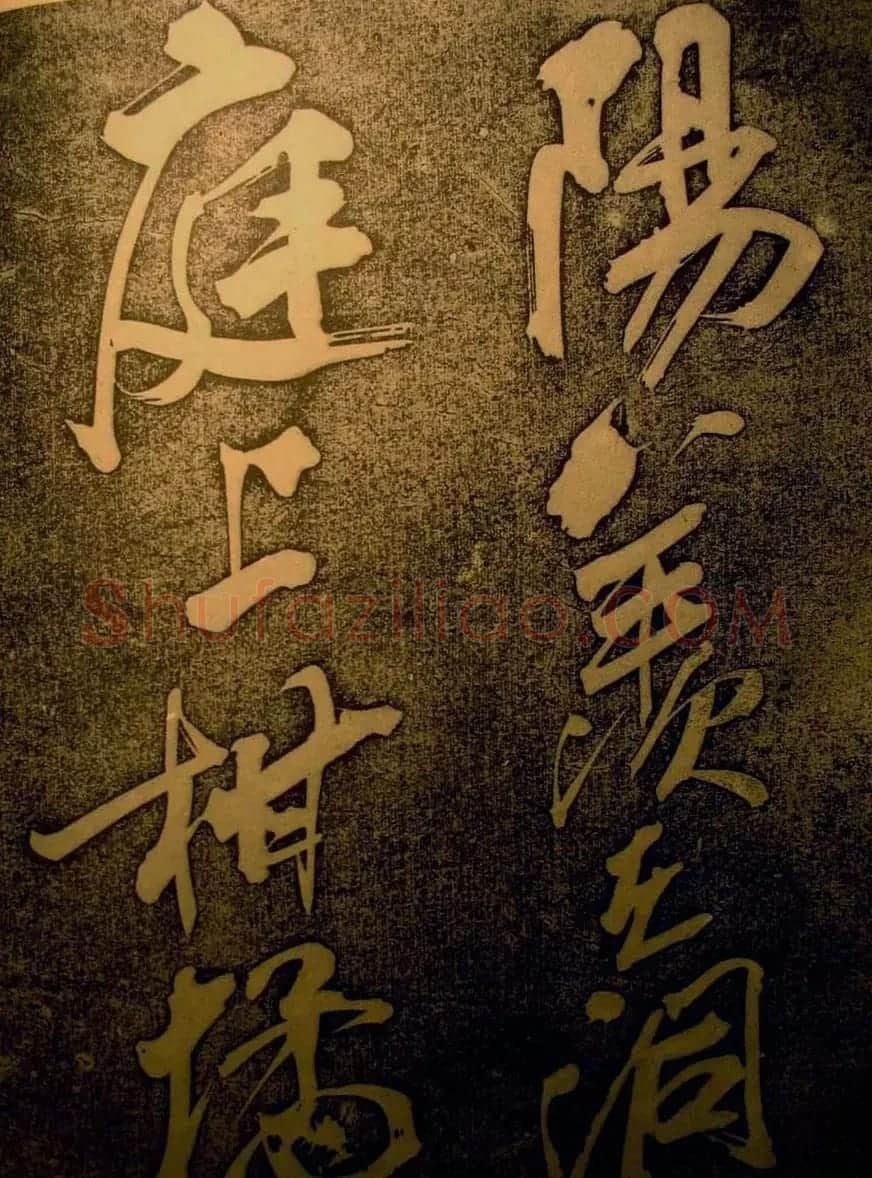 陽羨在洞
庭上柑橘
Shufaziliao.COM